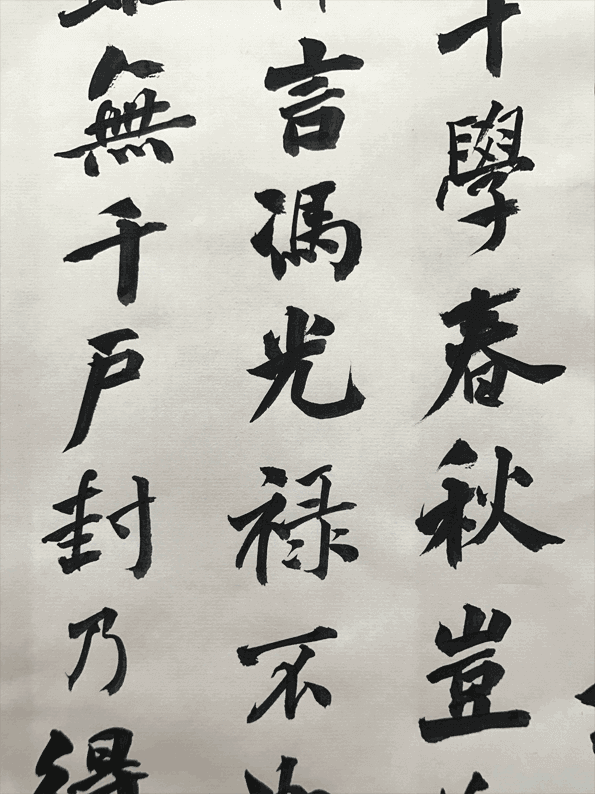 十學春秋豈
言馮光禄不
無千戶封乃得